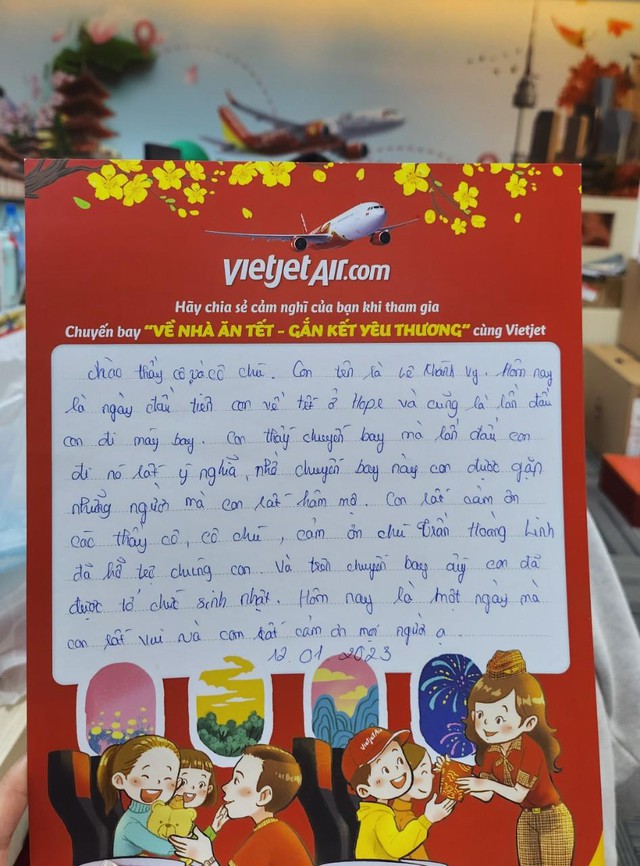 vietjetAir.com
Hãy chia sẻ cảm nghĩ của bạn khi tham gia
Chuyến bay "VỀ NHÀ ĂN TẾT - GẮN KẾT YÊU THƯƠNG" cùng Vietjet
chào thầy cô và cô chú. Con tên là Lê Khánh Vy. Hôm nay
là ngày đầu tiên con về tết ở Hope và cũng là lần đầu
con đi máy bay. Con thấy chuyến bay mà lần đầu con
đi nó rất ý nghĩa, nhờ chuyến bay này con được gặp
những người mà con rất hâm mộ. Con rất cảm ơn
các thầy cô, cô chú, cảm ơn chú Trần Hoàng Linh
đã hỗ trợ chúng con. Và trên chuyến bay ấy con đã
được tổ chức sinh nhật. Hôm nay là một ngày mà
con rất vui và con rất cảm ơn mọi người ạ.
12.01 2023
VietjetAir